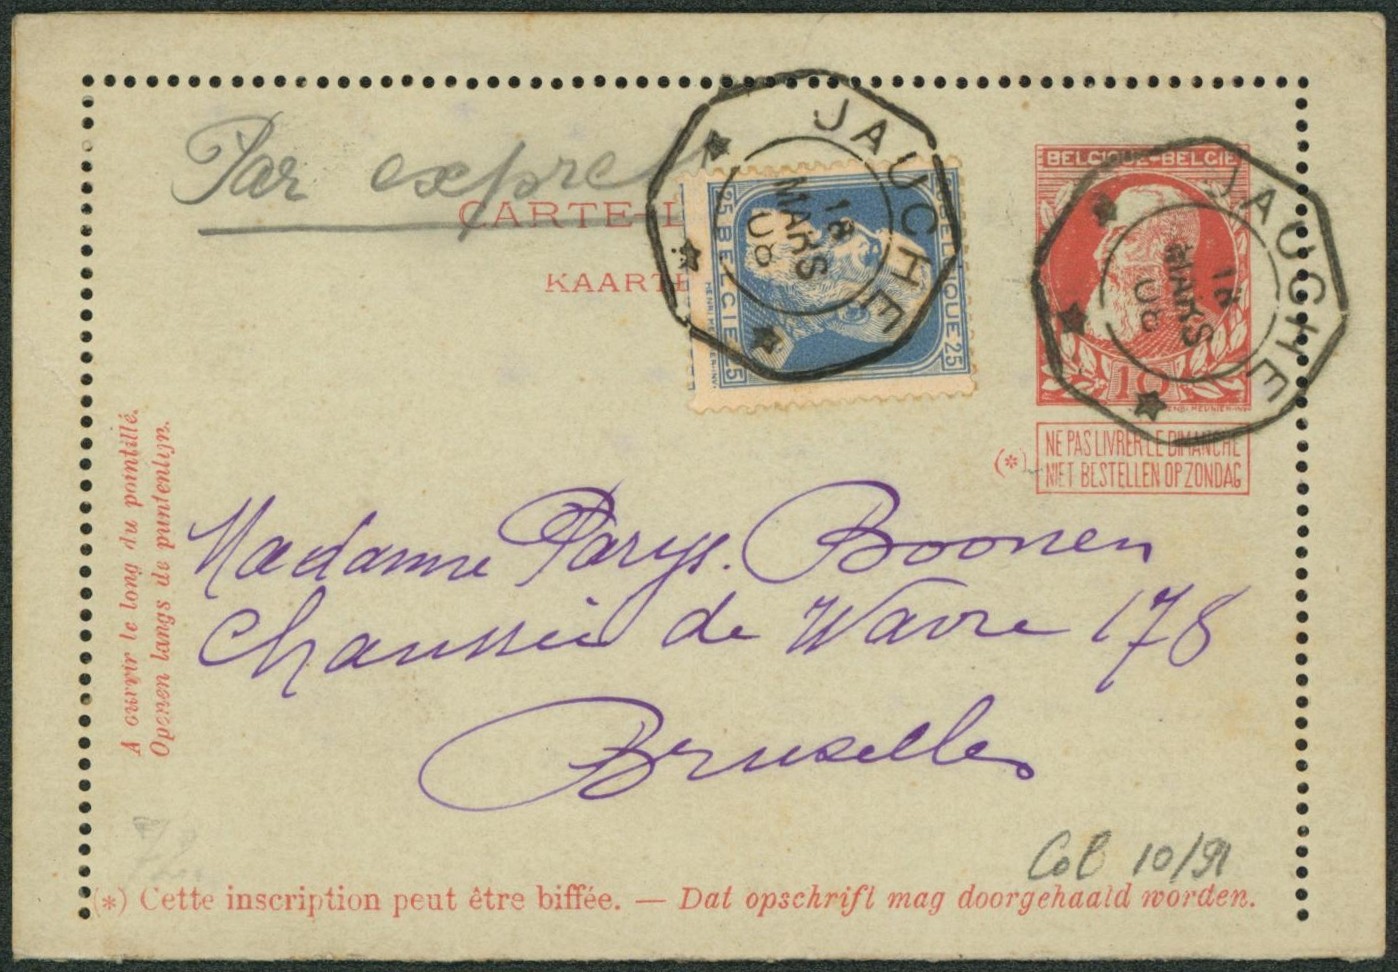 Par expres
CARTE-L
KAARTE
JAUCHE
18
MARS
08
25 BELGIQUE 25
25 BELGIE 25
BELGIQUE-BELGIE
10
JAUCHE
18
MARS
08
(*)
NE PAS LIVRER LE DIMANCHE
NIET BESTELLEN OP ZONDAG
A ouvrir le long du pointillé.
Openen langs de puntenlijn.
Madame Parys. Boonen
Chaussée de Wavre 178
Bruxelles
Col 10/91
(*) Cette inscription peut être biffée. — Dat opschrift mag doorgehaald worden.